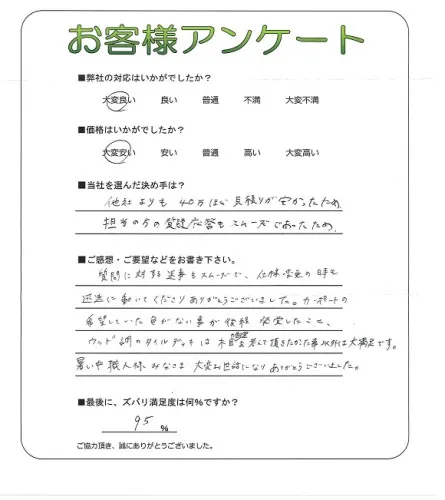 お客様アンケート
■弊社の対応はいかがでしたか?
大変良い 良い 普通 不満 大変不満
■価格はいかがでしたか?
大変安い 安い 普通 高い 大変高い
■当社を選んだ決め手は?
他社よりも40万ほど見積りが安かったため
担当の方の質疑応答もスムーズであったため。
■ご感想・ご要望などをお書き下さい。
質問に対する返事もスムーズで、仕様変更の時も
迅速に動いてくださりありがとうございました。カーポートの
希望していた色がない事が後程発覚したこと、
ウッド調のタイルデッキは木目を考えて頂きたかった事以外は大満足です。
暑い中職人様みなさま大変お世話になりありがとうございました。
■最後に、ズバリ満足度は何%ですか?
95 %
ご協力頂き、誠にありがとうございました。